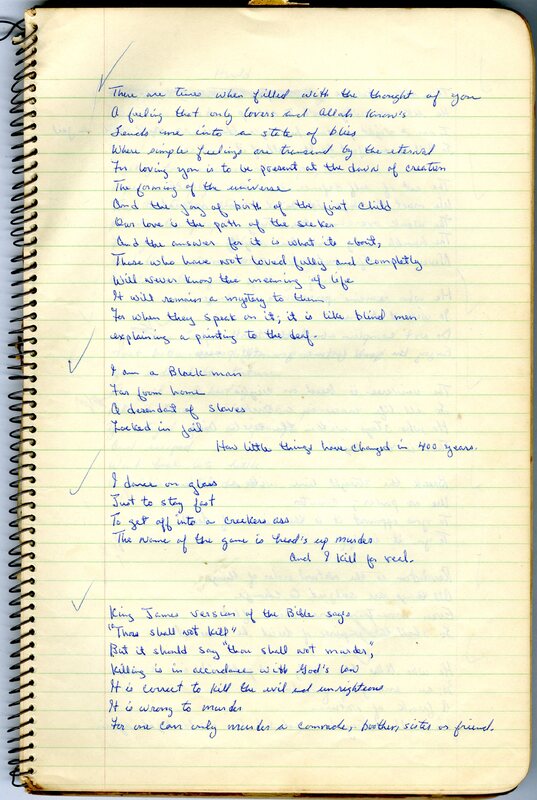 There are times when filled with the thought of you
A feeling that only lovers and Allah know's
Sends me into a state of bliss
Where simple feelings are transend by the eternal
For loving you is to be present at the dawn of creation
The forming of the universe
And the joy of birth of the first child
Our love is the path of the seeker
And the answer for it is what its about,
Those who have not loved fully and completly
Will never know the meaning of life
It will remain a mystery to them
For when they speak on it; it is like blind men
explaining a painting to the deaf.
I am a Black man
Far from home
A desendat of slaves
Locked in jail
How little things have changed in 400 years.
I dance on glass
Just to stay fast
To get off into a crackers ass
The name of the game is head's up murder
And I kill for real.
King James version of the Bible says
"Thou shall not kill"
But it should say "thou shall not murder",
Killing is in accordance with God's law
It is correct to kill the evil ed unrighteous
It is wrong to murder
For one can only murder a comrade, brother, sister or friend.